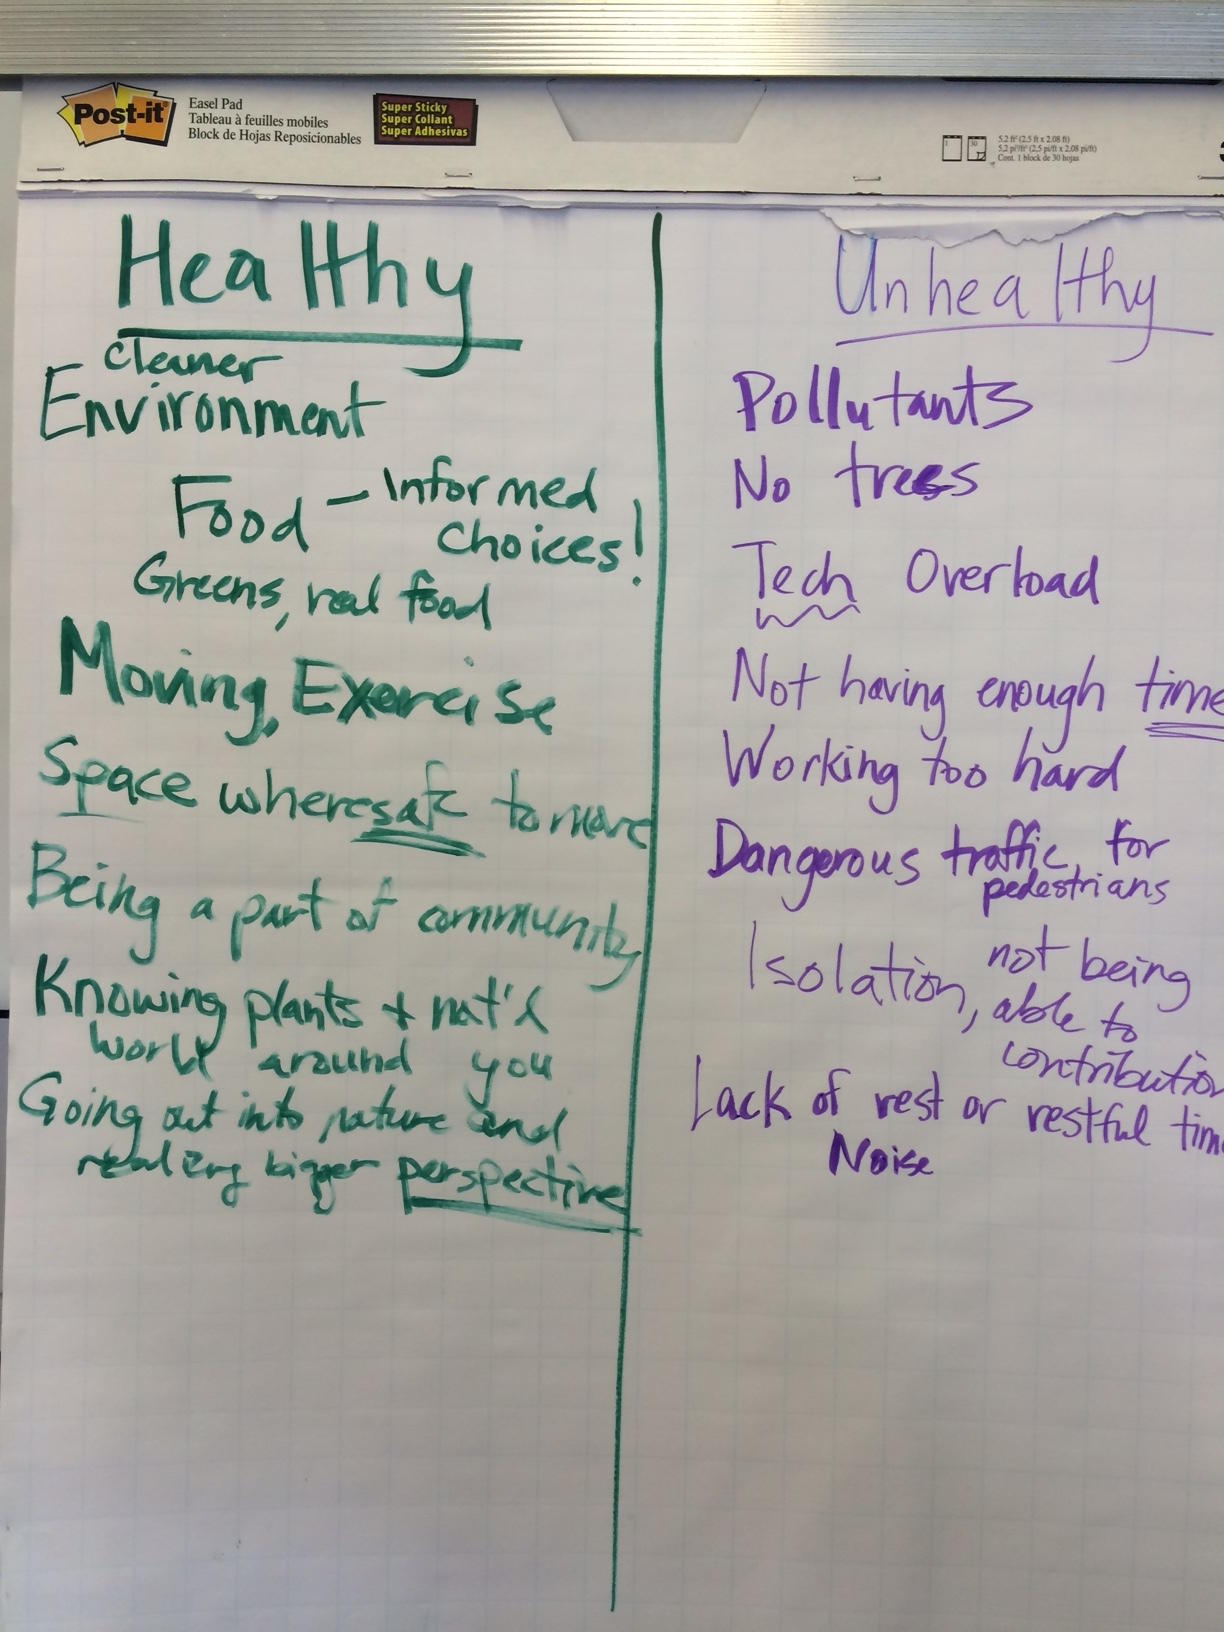 Post-it
Easel Pad
Tableau à feuilles mobiles
Block de Hojas Reposicionables
Super Sticky
Super Collant
Super Adhesivas
5.2 ft² (2.5 ft x 2.08 ft)
5,2 pi²/ft² (2,5 pi/ft x 2,08 pi/ft)
Cont. 1 block de 30 hojas
Healthy
cleaner
Environment
Food - Informed
choices!
Greens, real food
Moving, Exercise
Space where safe to move
Being a part of community
Knowing plants + nat'l
world around you
Going out into nature and
realizing bigger perspective
Unhealthy
Pollutants
No trees
Tech Overload
Not having enough time
Working too hard
Dangerous traffic, for
pedestrians
Isolation, not being
able to
contribution
Lack of rest or restful time
Noise